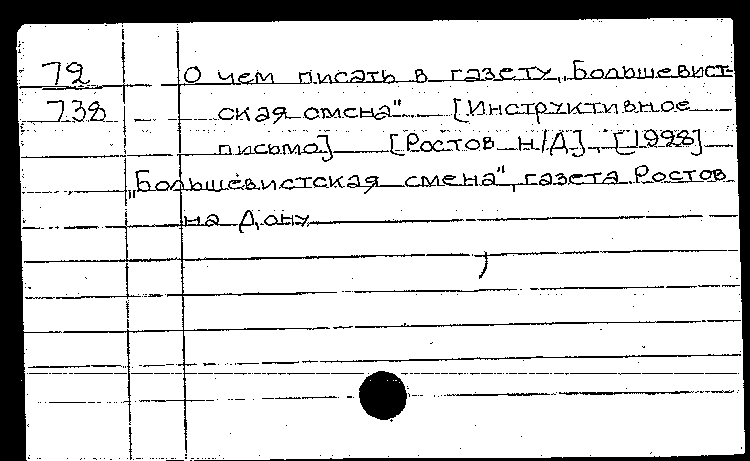 72 О чем писать в газету „Большевист-
738 ская смена" [Инструктивное
письмо] [Ростов н/Д], [1928]
„Большевистская смена", газета Ростов
на Дону